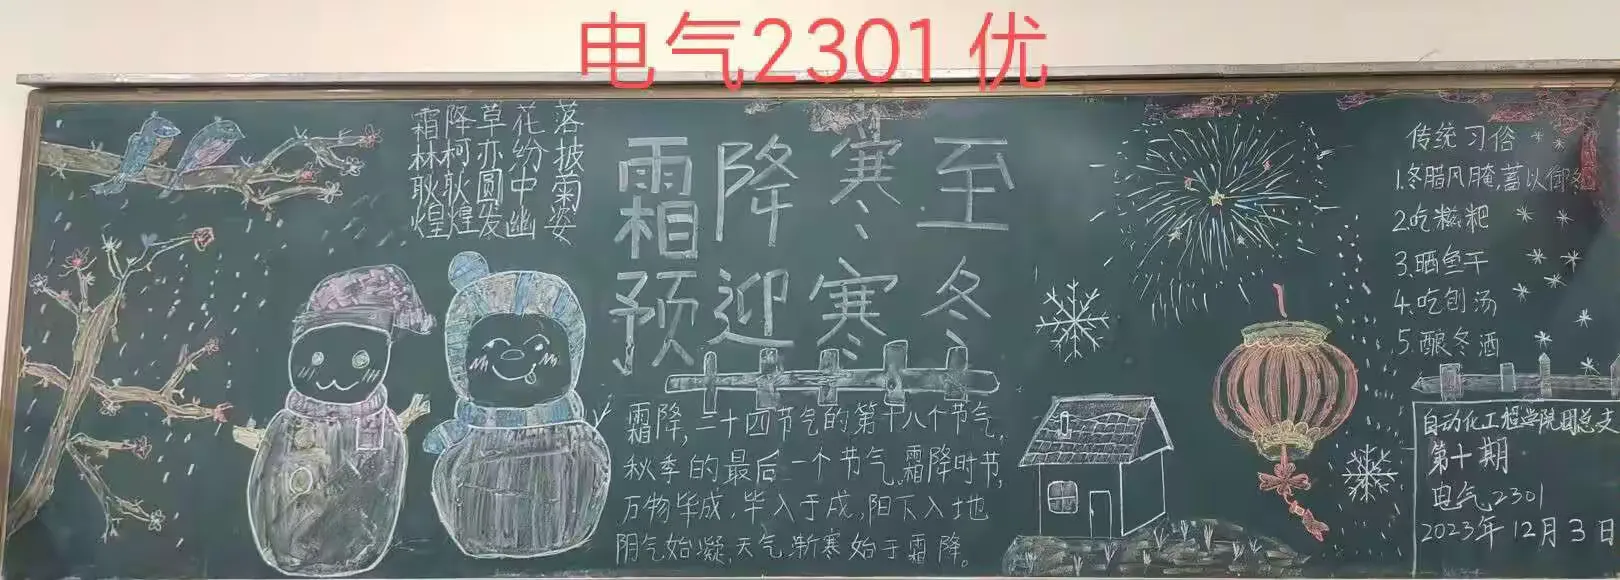 电气2301 优
霜降草花落
林柯亦纷披
耿耿圆中菊
煌煌发幽姿
霜降寒至
预迎寒冬
霜降,二十四节气的第十八个节气,
秋季的最后一个节气。霜降时节,
万物毕成,毕入于戌,阳下入地
阴气始凝,天气渐寒始于霜降。
传统习俗
1.冬腊风腌,蓄以御冬
2.吃糍粑
3.晒鱼干
4.吃刨汤
5.酿冬酒
自动化工程学院团总支
第十期
电气2301
2023年12月3日